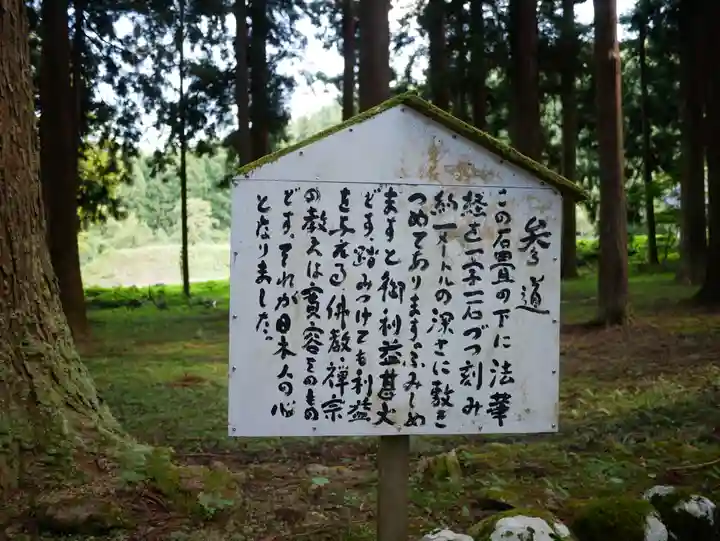 参道
この石畳の下に法華
経を一字一石づつ刻み
約一メートルの深さに敷き
つめてあります。ふみしめ
ますと御利益甚大
です。踏みつけても利益
を与える佛教・禅宗
の教えは寛容そのもの
です。それが日本人の心
となりました。